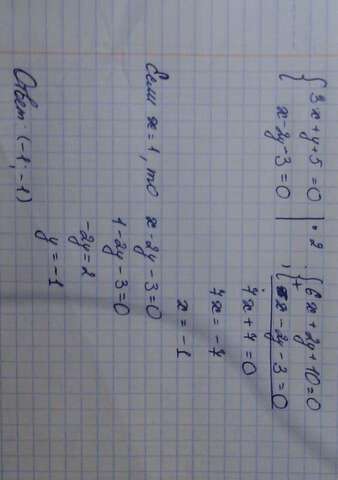 { 3x + y + 5 = 0 | · 2
{ x - 2y - 3 = 0 |
{ 6x + 2y + 10 = 0
{ + x - 2y - 3 = 0
7x + 7 = 0
7x = -7
x = -1
Если x = 1, то x - 2y - 3 = 0
1 - 2y - 3 = 0
-2y = 2
y = -1
Ответ: (-1; -1)